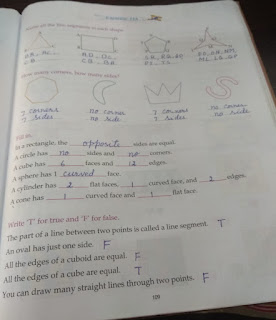 How many corners, how many sides?
7 corners no corner 7 corners no corner
7 sides no side 7 sides no side
Fill in.
In a rectangle, the opposite sides are equal.
A circle has no sides and no corners.
A cube has 6 faces and 12 edges.
A sphere has 1 curved face.
A cylinder has 2 flat faces, 1 curved face, and 2 edges.
A cone has 1 curved face and 1 flat face.
Write 'T' for true and 'F' for false.
The part of a line between two points is called a line segment. T
An oval has just one side. F
All the edges of a cuboid are equal. F
All the edges of a cube are equal. T
You can draw many straight lines through two points. F
109